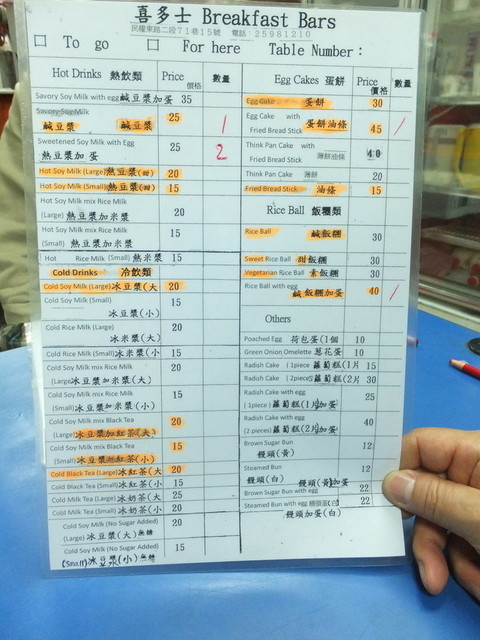 喜多士 Breakfast Bars
民權東路二段71巷15號 電話:25981210
□ To go □ For here Table Number:
Hot Drinks 熱飲類 Price 價格 數量
Savory Soy Milk with egg 鹹豆漿加蛋 35
Savory Soy Milk 鹹豆漿 鹹豆漿 25 1
Sweetened Soy Milk with Egg 熱豆漿加蛋 25 2
Hot Soy Milk (Large) 熱豆漿(甜) 20
Hot Soy Milk (Small) 熱豆漿(甜) 15
Hot Soy Milk mix Rice Milk
(Large) 熱豆漿加米漿 20
Hot Soy Milk mix Rice Milk
(Small) 熱豆漿加米漿 15
Hot Rice Milk (Small) 熱米漿 15
Cold Drinks 冷飲類
Cold Soy Milk (Large) 冰豆漿(大 20
Cold Soy Milk (Small)
冰豆漿(小) 15
Cold Rice Milk (Large)
冰米漿(大) 20
Cold Rice Milk (Small) 冰米漿(小 15
Cold Soy Milk mix Rice Milk
(Large 冰豆漿加米漿(大) 20
Cold Soy Milk mix Rice Milk
(Small) 冰豆漿加米漿(小) 15
Cold Soy Milk mix Black Tea
(Large) 冰豆漿加紅茶(大) 20
Cold Soy Milk mix Black Tea
(Small) 冰豆漿加紅茶(小) 15
Cold Black Tea (Large) 冰紅茶(大 20
Cold Black Tea (Small) 冰紅茶(小) 15
Cold Milk Tea (Large) 冰奶茶(大) 25
Cold Milk Tea (Small) 冰奶茶(小) 20
Cold Soy Milk (No Sugar Added)
(Large) 冰豆漿(大)無糖 20
Cold Soy Milk (No Sugar Added)
(Small) 冰豆漿(小)無糖 15
Egg Cakes 蛋餅 Price 價格 數量
Egg Cake 蛋餅 30
Egg Cake with
Fried Bread Stick 蛋餅油條 45 /
Think Pan Cake with
Fried Bread Stick 薄餅油條 40
Think Pan Cake 薄餅 20
Fried Bread Stick 油條 15
Rice Ball 飯糰類
Rice Ball 鹹飯糰 30
Sweet Rice Ball 甜飯糰 30
Vegetarian Rice Ball 素飯糰 30
Rice Ball with egg
鹹飯糰加蛋 40 /
Others
Poached Egg 荷包蛋(1個 10
Green Onion Omelette 蔥花蛋 10
Radish Cake (1piece) 蘿蔔糕(1片 15
Radish Cake (2pieces) 蘿蔔糕(2片 30
Radish Cake with egg
(1piece) 蘿蔔糕(1片)加蛋 25
Radish Cake with egg
(2 pieces) 蘿蔔糕(2片)加蛋 40
Brown Sugar Bun
饅頭(黃) 12
Steamed Bun
饅頭(白) 12
饅頭(黃)加蛋
Brown Sugar Bun with egg 22
Steamed Bun with egg 22
饅頭加蛋(白)